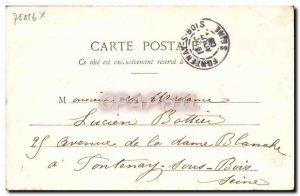 75016 x
CARTE POSTALE
Ce côté est exclusivement réservé à
FONTENAY-S-BOIS
SEINE
M onsieur et Madame
Lucien Bottier
25 avenue de la dame Blanche
à Fontenay-sous-Bois
Seine